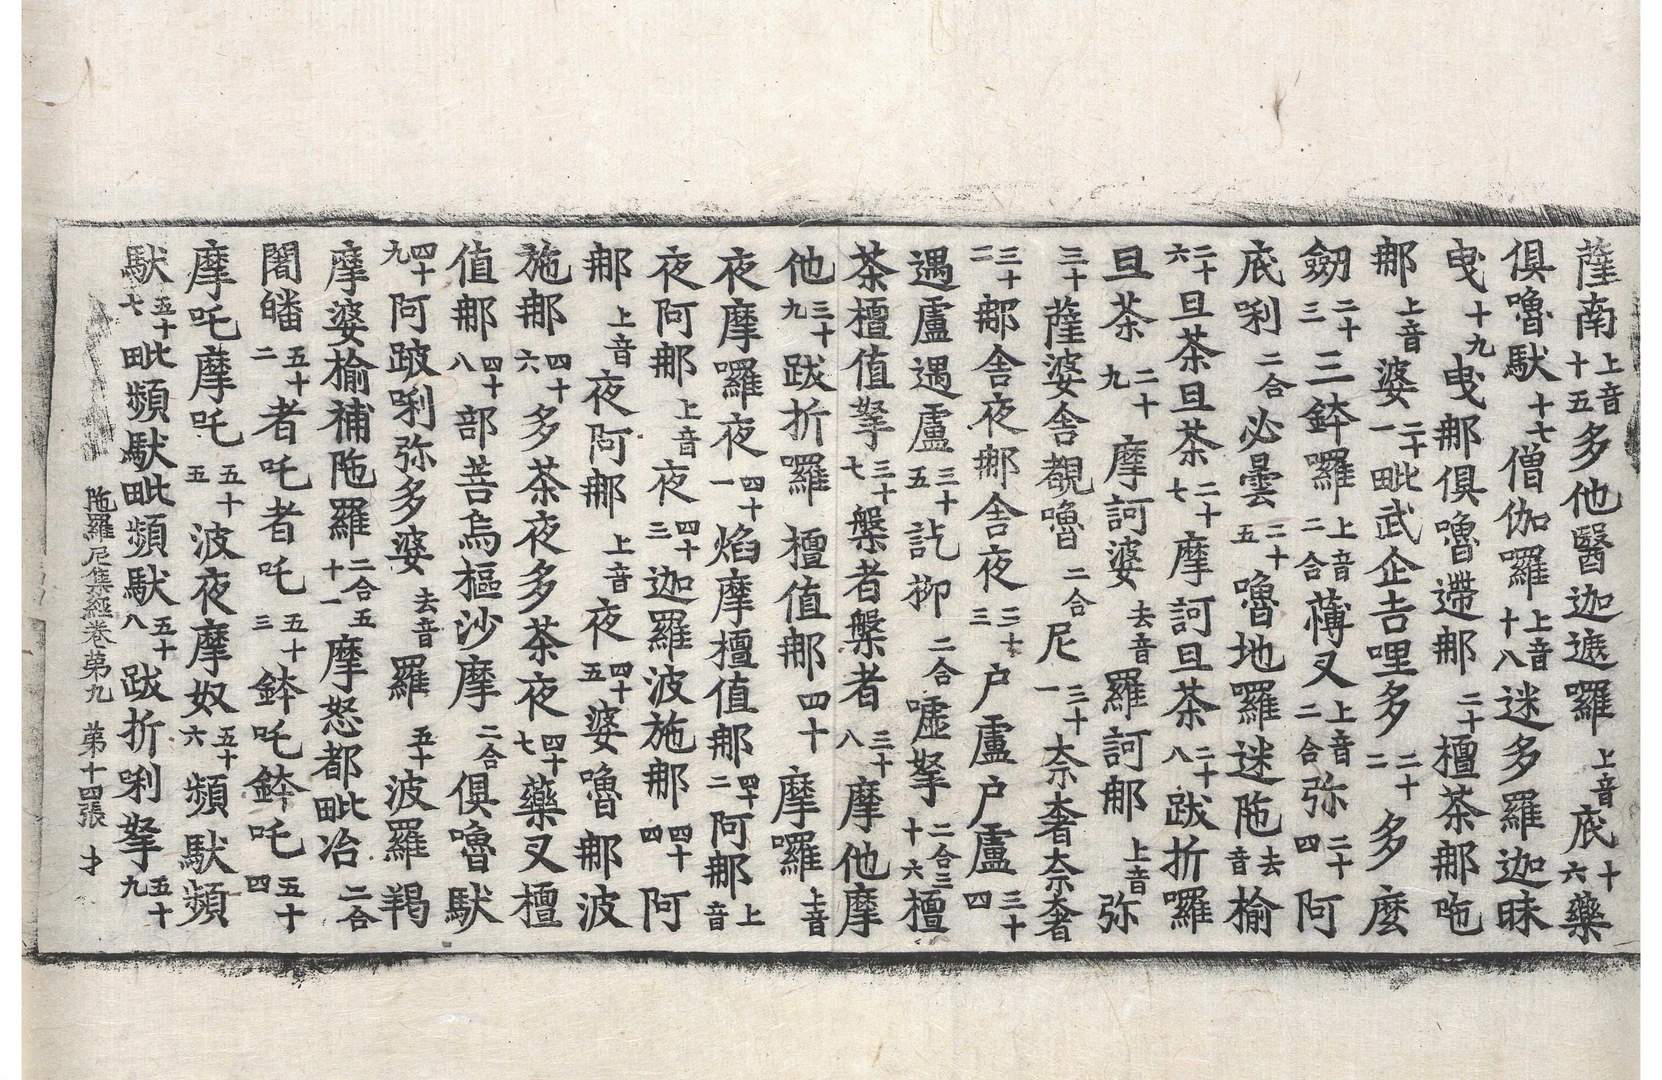 薩南上音十五多他醫迦遮羅上音底十六藥
俱嚕馱十七僧伽囉上音十八迷多羅迦昧
曳十九曳那俱嚕滯那二十檀茶那吔
那上音婆二十一毗武企吉哩多二十二多麼
劒二十三三鉢囉上音二合薄叉上音二合弥二十四阿
底唎二合必曇二十五嚕地羅迷陁去音榆
二十六旦茶旦茶二十七摩訶旦茶二十八跋折囉
旦茶二十九摩訶婆去音羅訶那上音弥
三十薩婆舍覩嚕二合尼三十一奈奢奈奢
三十二那舍夜那舍夜三十三户盧户盧三十四
遇盧遇盧三十五訖抑二合嘘拏二合三十六檀
茶檀值拏三十七槃者槃者三十八摩他摩
他三十九跋折囉檀值那四十摩囉上音
夜摩囉夜四十一焰摩檀值那四十二阿那上音
夜阿那上音夜四十三迦羅波施那四十四阿
那上音夜阿那上音夜四十五婆嚕那波
施那四十六多茶夜多茶夜四十七藥叉檀
值那四十八部菩烏樞沙摩二合俱嚕馱
四十九阿跛唎弥多婆去音羅五十波羅羯
摩婆榆補陁羅二合五十一摩怒都毗冶二合
闇皤五十二者吒者吒五十三鉢吒鉢吒五十四
摩吒摩吒五十五波夜摩奴五十六頻馱頻
馱五十七毗頻馱毗頻馱五十八跋折唎拏五十九
陁羅尼集經卷第九 第十四張 才